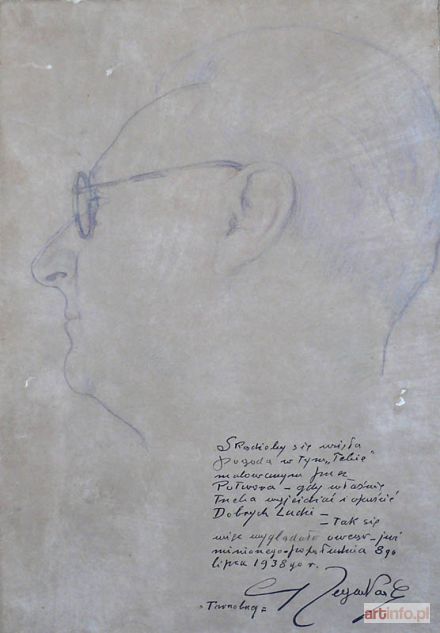 Skądieby się wzięła
pogoda w tym „Łebie"
malowanym przez
Potwora – gdy właśnie
trzeba wyjeżdżać i opuścić
Dobrych Ludzi –
– tak się
więc wyglądało owego – już
minionego – popołudnia 8go
lipca 1938go r.
artinfo.pl